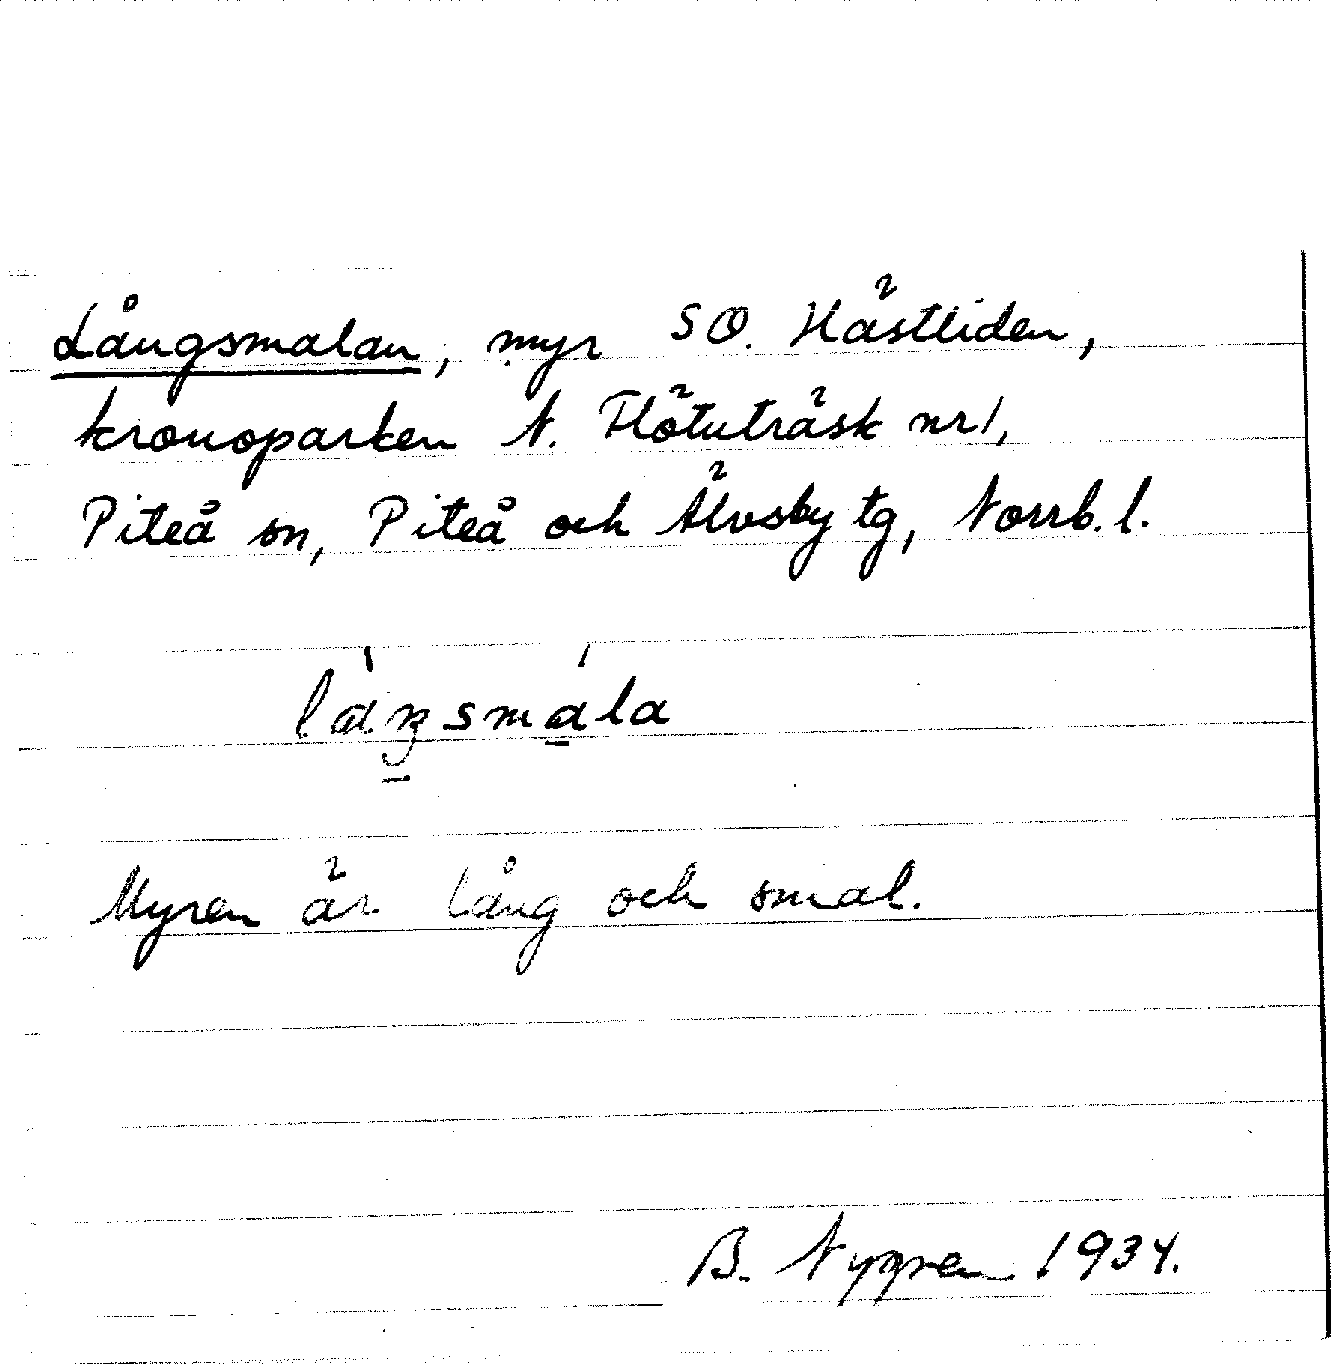 Långsmalan, myr SO. Hästliden,
kronoparken N. Flötuträsk nr 1,
Piteå sn, Piteå och Älvsby tg, Norrb. l.
Myren är lång och smal.
B. Nygren 1934.